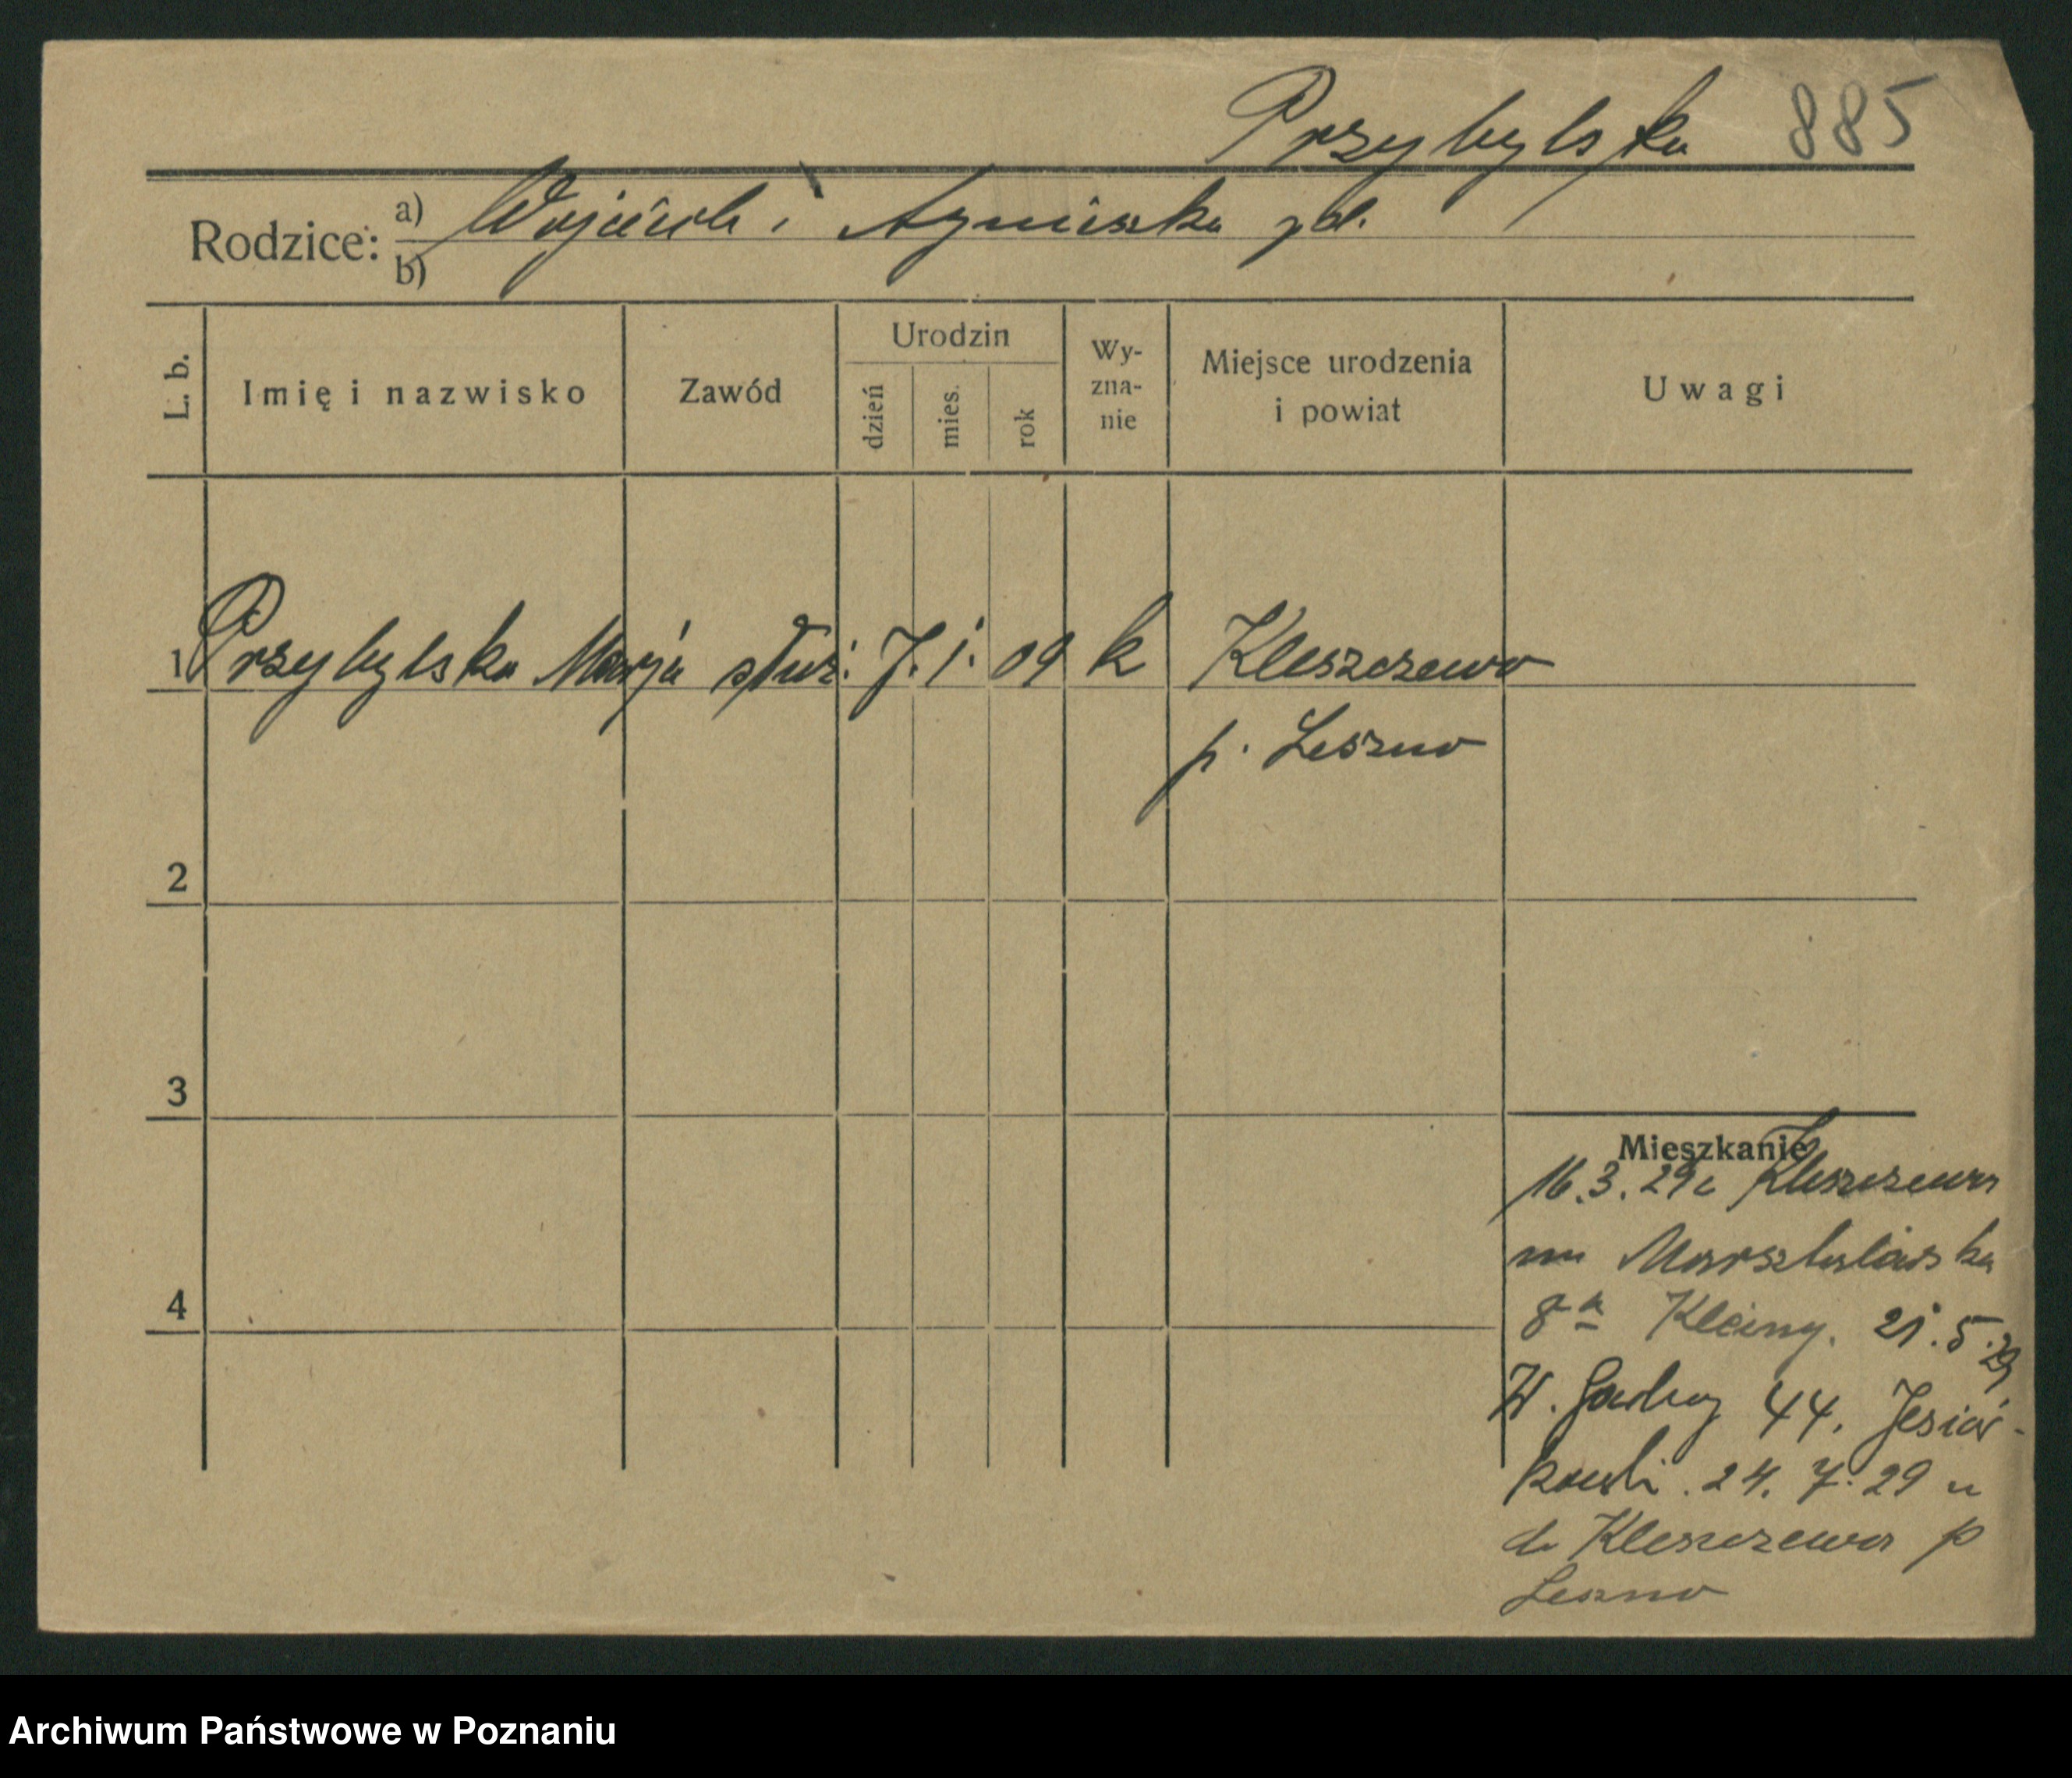 Przybylska 885
Rodzice: a) Wojciech i Agnieszka
b)
L. b.
Imię i nazwisko
Zawód
Urodzin
dzień
mies.
rok
Wy-
zna-
nie
Miejsce urodzenia
i powiat
Uwagi
1 Przybylska Marja służ. 7. 1. 09 k Kleszczewo
p. Leszno
2
3
4
Mieszkanie
16.3.29 z Kleszczewa
na Marsztalarska
8a 21.5.29
W. Garbary 44.
24.7.29
do Kleszczewa p
Leszno
Archiwum Państwowe w Poznaniu